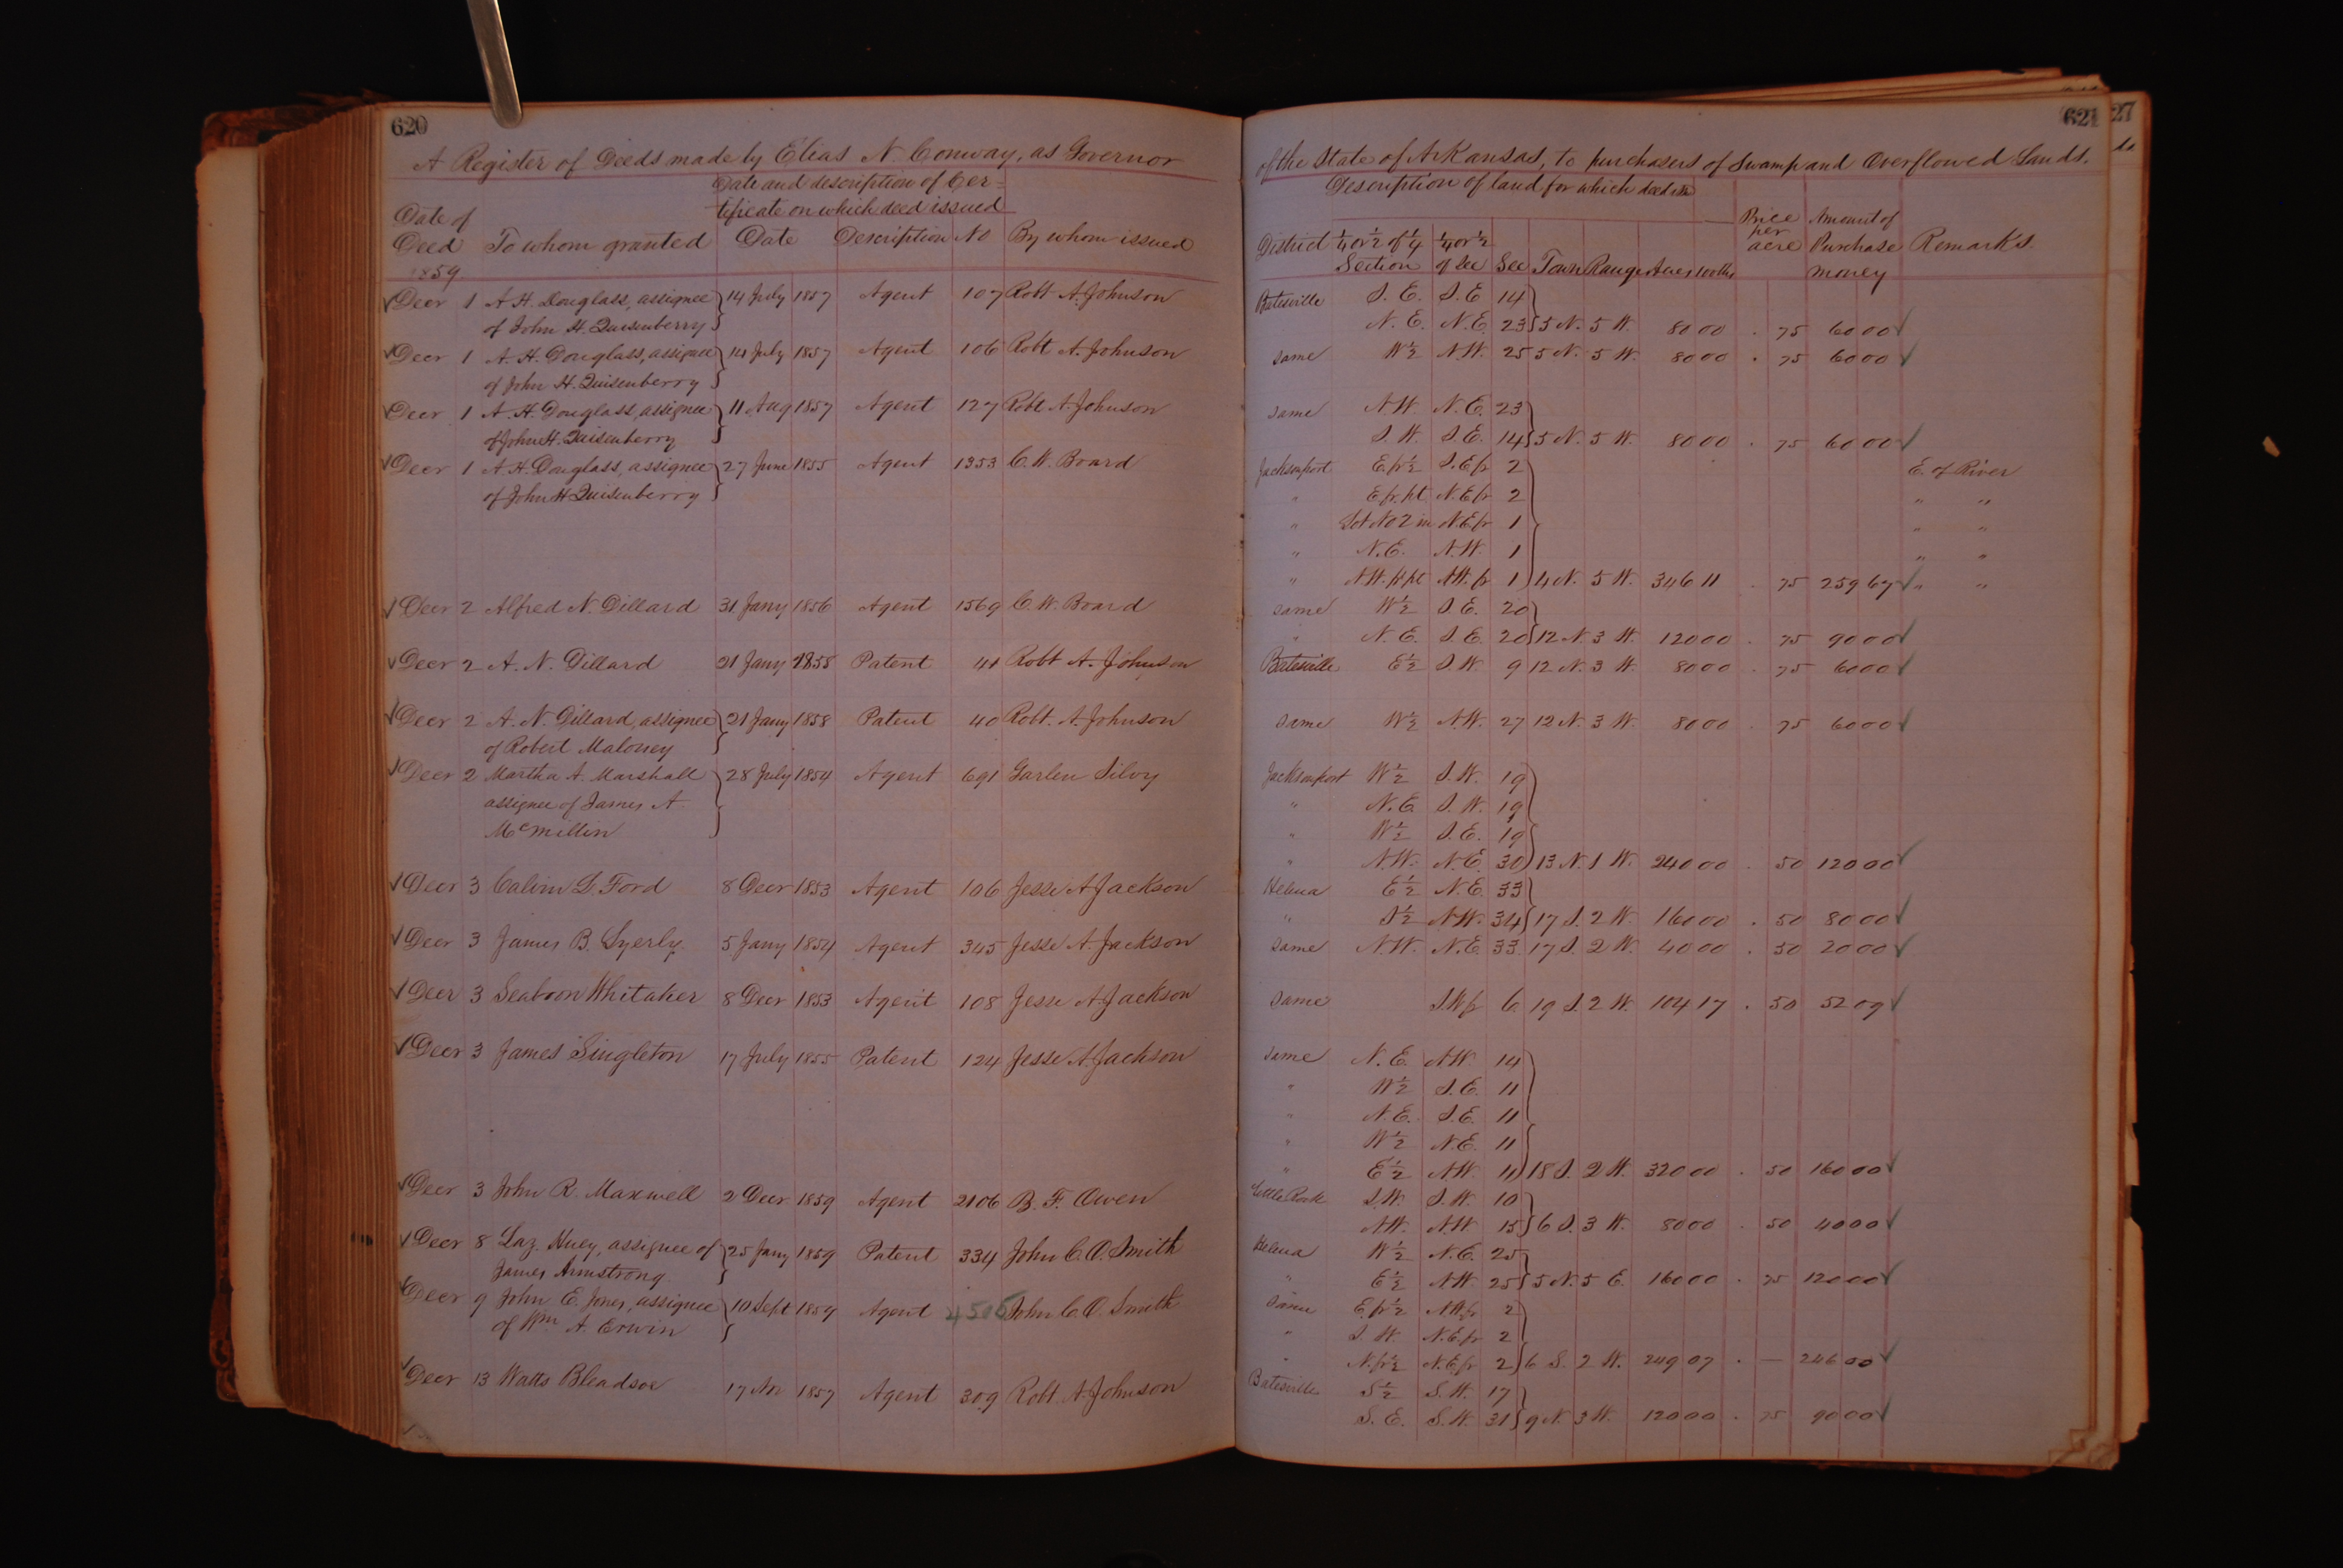 620
A Register of Deeds made by Elias N. Conway, as Governor
Date and description of Cer=
tificate on which deed issued
Date of
Deed To whom granted Date Description No By whom issued
1859
Decr 1 A. H. Douglass, assignee 14 July 1857 Agent 107 Robt A. Johnson
of John H. Quisenberry
Decr 1 A. H. Douglass, assignee 14 July 1857 Agent 106 Robt A. Johnson
of John H. Quisenberry
Decr 1 A. H. Douglass, assignee 11 Aug 1857 Agent 127 Robt A. Johnson
of John H. Quisenberry
Decr 1 A. H. Douglass, assignee 27 June 1855 Agent 1353 C. W. Board
of John H Quisenberry
Decr 2 Alfred N. Dillard 31 Jany 1856 Agent 1569 C. W. Board
Decr 2 A. N. Dillard 21 Jany 1858 Patent 41 Robt A. Johnson
Decr 2 A. N. Dillard, assignee 21 Jany 1858 Patent 40 Robt. A. Johnson
of Robert Maloney
Decr 2 Martha A. Marshall 28 July 1854 Agent 691 Garlen Silvy
assignee of James A.
McMillin
Decr 3 Calvin L. Ford 8 Decr 1853 Agent 106 Jesse A Jackson
Decr 3 James B. Lyerly 5 Jany 1854 Agent 345 Jesse A. Jackson
Decr 3 Seaborn Whitaker 8 Decr 1853 Agent 108 Jesse A Jackson
Decr 3 James Singleton 17 July 1855 Patent 124 Jesse A. Jackson
Decr 3 John R. Maxwell 2 Decr 1859 Agent 2106 B. F. Owen
Decr 8 Laz. Huey, assignee of 25 Jany 1859 Patent 334 John C. O. Smith
James Armstrong
Decr 9 John E. Jones, assignee 10 Sept 1859 Agent 4505 John C. O. Smith
of Wm A. Erwin
Decr 13 Watts Bleadsoe 17 1857 Agent 309 Robt. A. Johnson
621
27
of the State of Arkansas, to purchasers of Swamp and Overflowed Lands.
Description of land for which deed is
District ¼ or ½ of ¼ Section ¼ or ½ of Sec Sec Town Range Acres 100ths Price per acre Amount of Purchase money Remarks.
Batesville S. E. S. E 14
N. E. N. E. 23 5 N. 5 W. 80 00 . 75 60 00
same W½ N.W. 25 5 N. 5 W. 80 00 . 75 60 00
same N.W. N. E. 23
S. W. S. E. 14 5 N. 5 W. 80 00 . 75 60 00
Jacksonport E. fr ½ S. E fr 2 E. of River
" E fr. pt N. E fr 2 " "
" Lot No 2 in N. E fr 1 " "
" N. E. N.W. 1 " "
" N.W. fr pt N.W. fr 1 4 N. 5 W. 346 11 . 75 259 67 " "
same W½ S. E. 20
" N. E. S. E. 20 12 N 3 W. 120 00 . 75 90 00
Batesville E½ S. W. 9 12 N. 3 W. 80 00 . 75 60 00
same W½ N.W. 27 12 N. 3 W. 80 00 . 75 60 00
Jacksonport W½ S. W. 19
" N. E S. W. 19
" W½ S. E. 19
" N.W. N. E. 30 13 N. 1 W. 240 00 . 50 120 00
Helena E½ N. E. 33
" S½ N.W. 34 17 S. 2 W. 160 00 . 50 80 00
same N.W. N. E. 33 17 S. 2 W. 40 00 . 50 20 00
same S.W fr 6 19 S. 2 W. 104 17 . 50 52 09
same N. E. N.W. 14
" W½ S. E. 11
" N. E. S. E. 11
" W½ N. E. 11
" E½ N.W. 11 18 S. 2 W. 320 00 . 50 160 00
Little Rock S.W. S. W. 10
N.W. N.W 15 6 S. 3 W. 80 00 . 50 40 00
Helena W½ N. E. 25
" E½ N.W. 25 5 N. 5 E. 160 00 . 75 120 00
same E. fr ½ N.W. fr 2
" S. W. N. E. fr 2
" N. fr ½ N. E fr 2 6 S. 2 W. 249 07 . — 246 00
Batesville S½ S. W. 17
S. E. S. W. 31 9 N. 3 W. 120 00 . 75 90 00